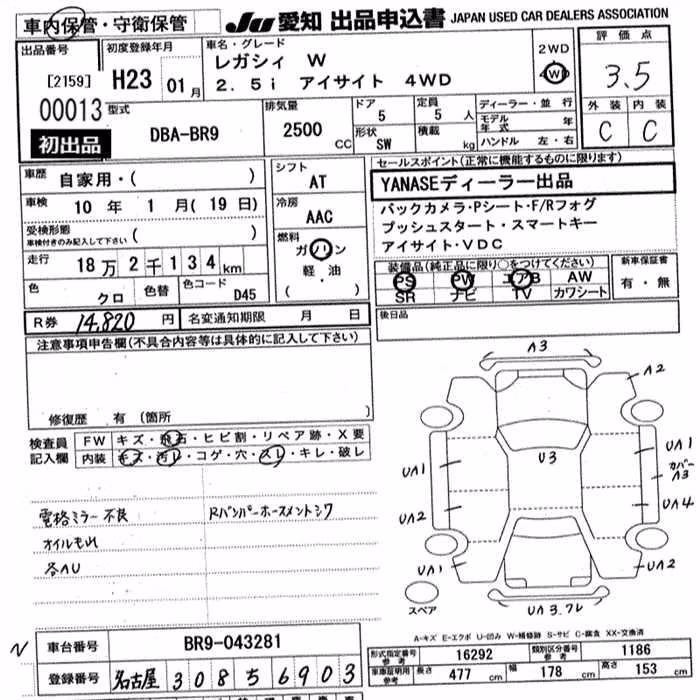 車内保管・守衛保管
JU 愛知 出品申込書 JAPAN USED CAR DEALERS ASSOCIATION
出品番号 初度登録年月 車名・グレード 評価点
[2159] H23 01月 レガシィ W 2WD
2.5i アイサイト 4WD 4WD 3.5
00013 型式 排気量 ドア 定員 ディーラー・並行 外装 内装
5 5人 モデル年式 年
初出品 DBA-BR9 2500CC 形状 積載 ハンドル 左・右 C C
SW kg
車歴 自家用・( ) シフト セールスポイント(正常に機能するものに限ります)
AT YANASEディーラー出品
車検 10年 1月(19日) 冷房 バックカメラ・Pシート・F/Rフォグ
AAC プッシュスタート・スマートキー
受検形態 ( ) 燃料 アイサイト・VDC
車検付きのみ記入して下さい ガソリン
走行 18万2千134km 軽・油 装備品(純正品に限り○をつけてください) 新車保証書
( ) PS PW エアB AW 有・無
色 クロ 色替 色コード D45 SR ナビ TV カワシート
R券 14,820円 名変通知期限 月 日 後日品
注意事項申告欄(不具合内容等は具体的に記入して下さい)
修復歴 有 (箇所 )
検査員 FW キズ・飛石・ヒビ割・リペア跡・X要
記入欄 内装 キズ・汚レ・コゲ・穴・スレ・キレ・破レ
電格ミラー不良 Rバンパーホースメントシワ
オイルもれ
各AU
A3
A2
U3
UA1 UA1
カバー
A3
UA2 UA4
UA1 UA2
スペア UA3.フレ
A-キズ E-エクボ U-凹み W-補修跡 S-サビ C-腐食 XX-交換済
N 車台番号 BR9-043281
形式指定番号 参考 16292 類別区分番号 参考 1186
登録番号 名古屋 308 5 6903
車庫証明用 参考 長さ 477cm 幅 178cm 高さ 153cm